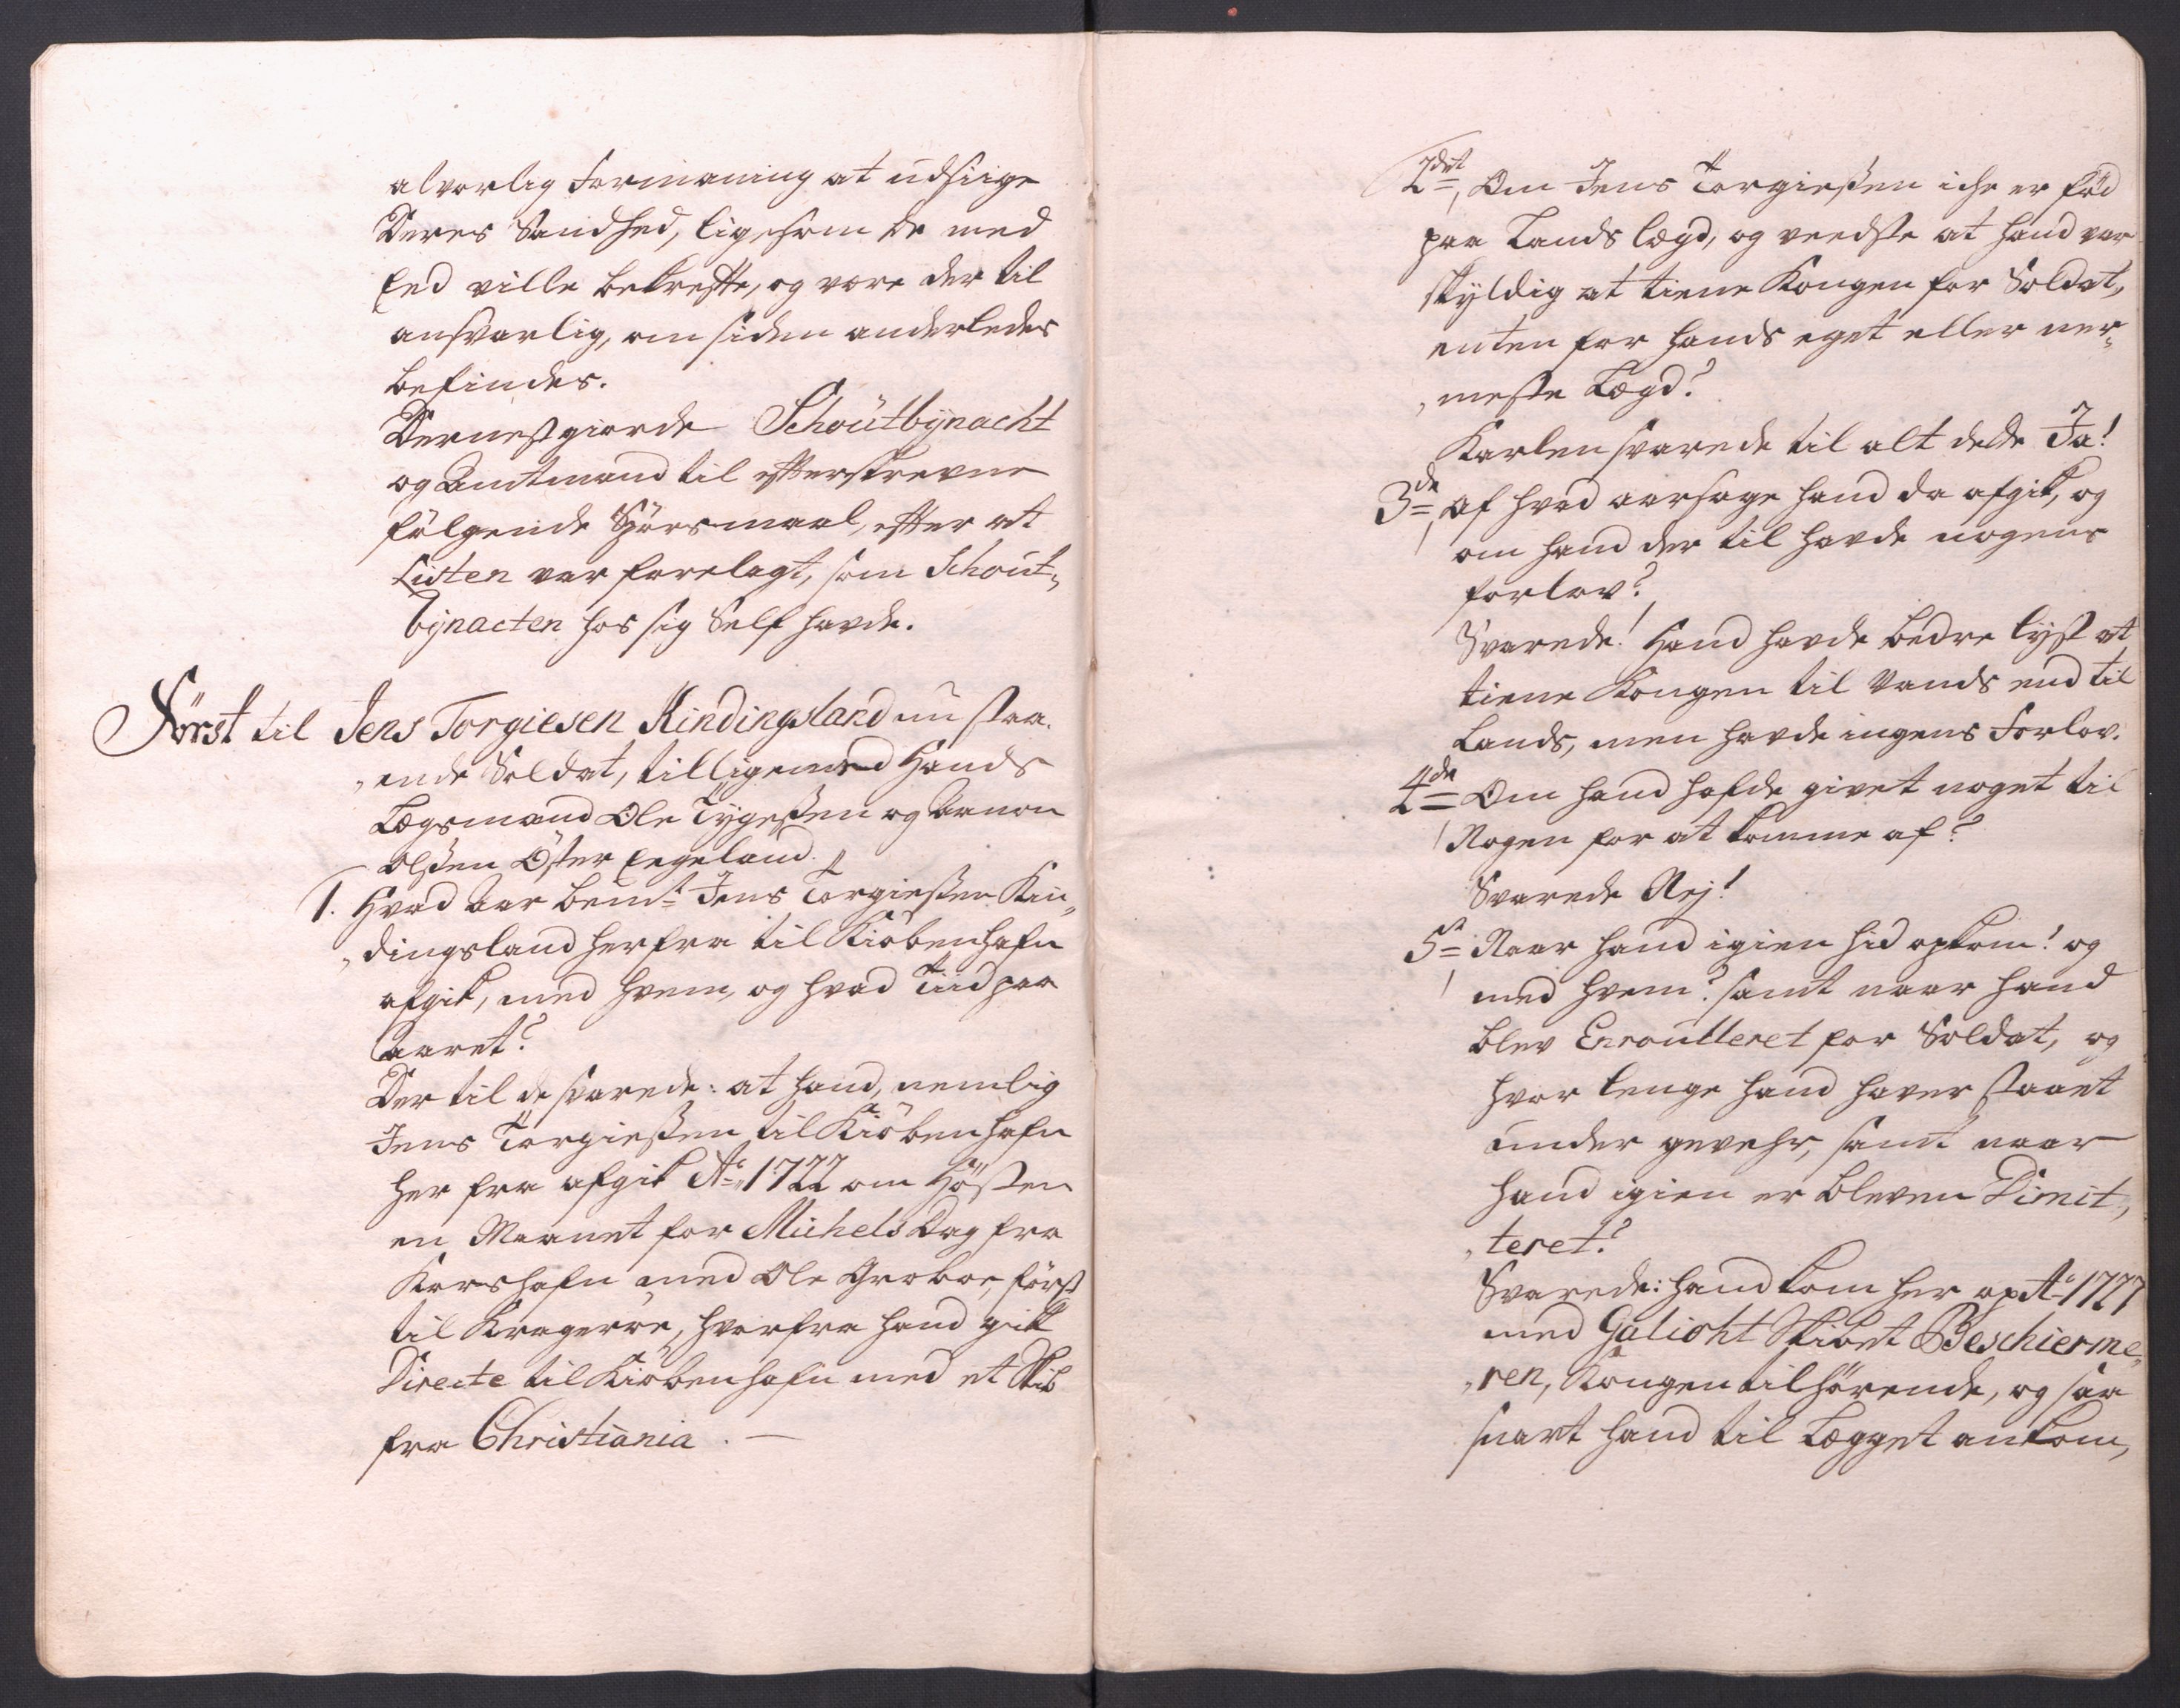 alvorlig Formaning at udsiige
Deres Sandhed, ligesom de med
Eed ville bekrefte, og være der til
ansvarlig, om siden anderledes
befindes.
Dernest giorde Schoutbynacht
og Amtmand til efterskrevne
følgende Spörsmaal, efter at
Listen var forelagt, som Schout„
bynacten hos sig Self havde.
Först til Jens Torgiesen Kindingsland nu staa„
„ende Soldat, tilligemed Hands
Lægsmænd Ole Tygeßen og Aanon
Olßen Öster Egeland.
1. Hvad Aar bemte Jens Torgießen Kin„
„dingsland herfra til Kiöbenhafn
afgik, med hvem, og hvad Tiid paa
Aaret?
Der til de svarede: at hand, nemlig
Jens Torgießen til Kiöbenhafn
her fra afgik Ao 1722 om Hösten
en Maanet for Michels Dag fra
Korshafn med Ole Groboe, först
til Krageröe, hvorfra hand gik
Directe til Kiöbenhafn med et Skib
fra Christiania. —
2det, Om Jens Torgießen iche er föd
paa Lands lægd, og veedste at hand var
skyldig at tiene Kongen for Soldat,
enten for hands eget eller ner„
„meste Lægd?
Karlen svarede til alt dette Ja!
3de, af hvad aarsage hand da afgik, og
om hand der til havde nogens
forlov?
Svarede! Hand havde bedre lyst at
tiene Kongen til Vands end til
Lands, men havde ingens Forlov.
4de Om hand hafde givet noget til
Nogen for at komme af?
Svarede Nej!
5te Naar hand igien hid opkom! og
med hvem? samt naar hand
blev Enroulleret for Soldat, og
hvor lenge hand haver staaet
under gevehr, samt naar
hand igien er bleven Dimit„
„teret?
Svarede: hand kom her op Ao 1727
med Galioht Skibet Beschierme„
„ren, Kongen tilhörende, og saa
snart hand til Lægget ankom,